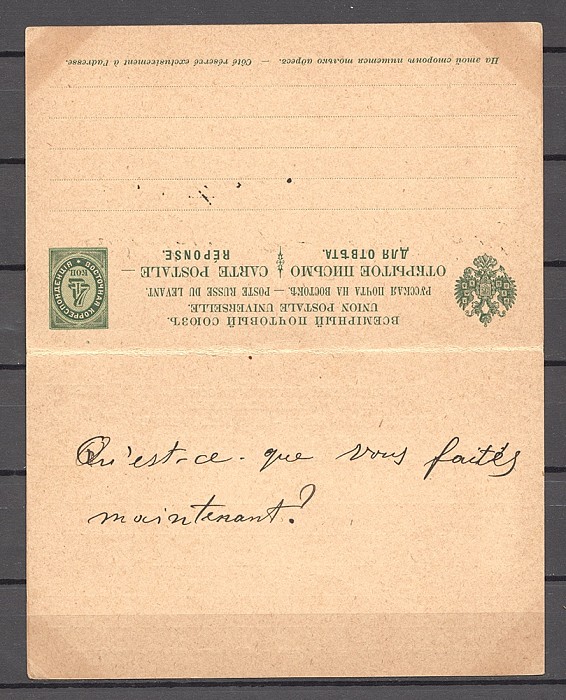 ВСЕМІРНЫЙ ПОЧТОВЫЙ СОЮЗЪ.
UNION POSTALE UNIVERSELLE.
РУССКАЯ ПОЧТА НА ВОСТОКѢ. — POSTE RUSSE DU LEVANT.
ОТКРЫТОЕ ПИСЬМО CARTE POSTALE —
ДЛЯ ОТВѢТА. RÉPONSE.
ВОСТОЧНАЯ КОРРЕСПОНДЕНЦІЯ
4
КОП
На этой сторонѣ пишется только адресъ. — Côté réservé exclusivement à l'adresse.
Qu'est-ce-que vous faites
maintenant?